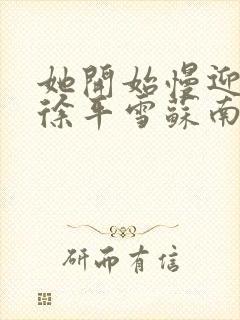 她開始慢迎
徐平雪蘇南
研而有信